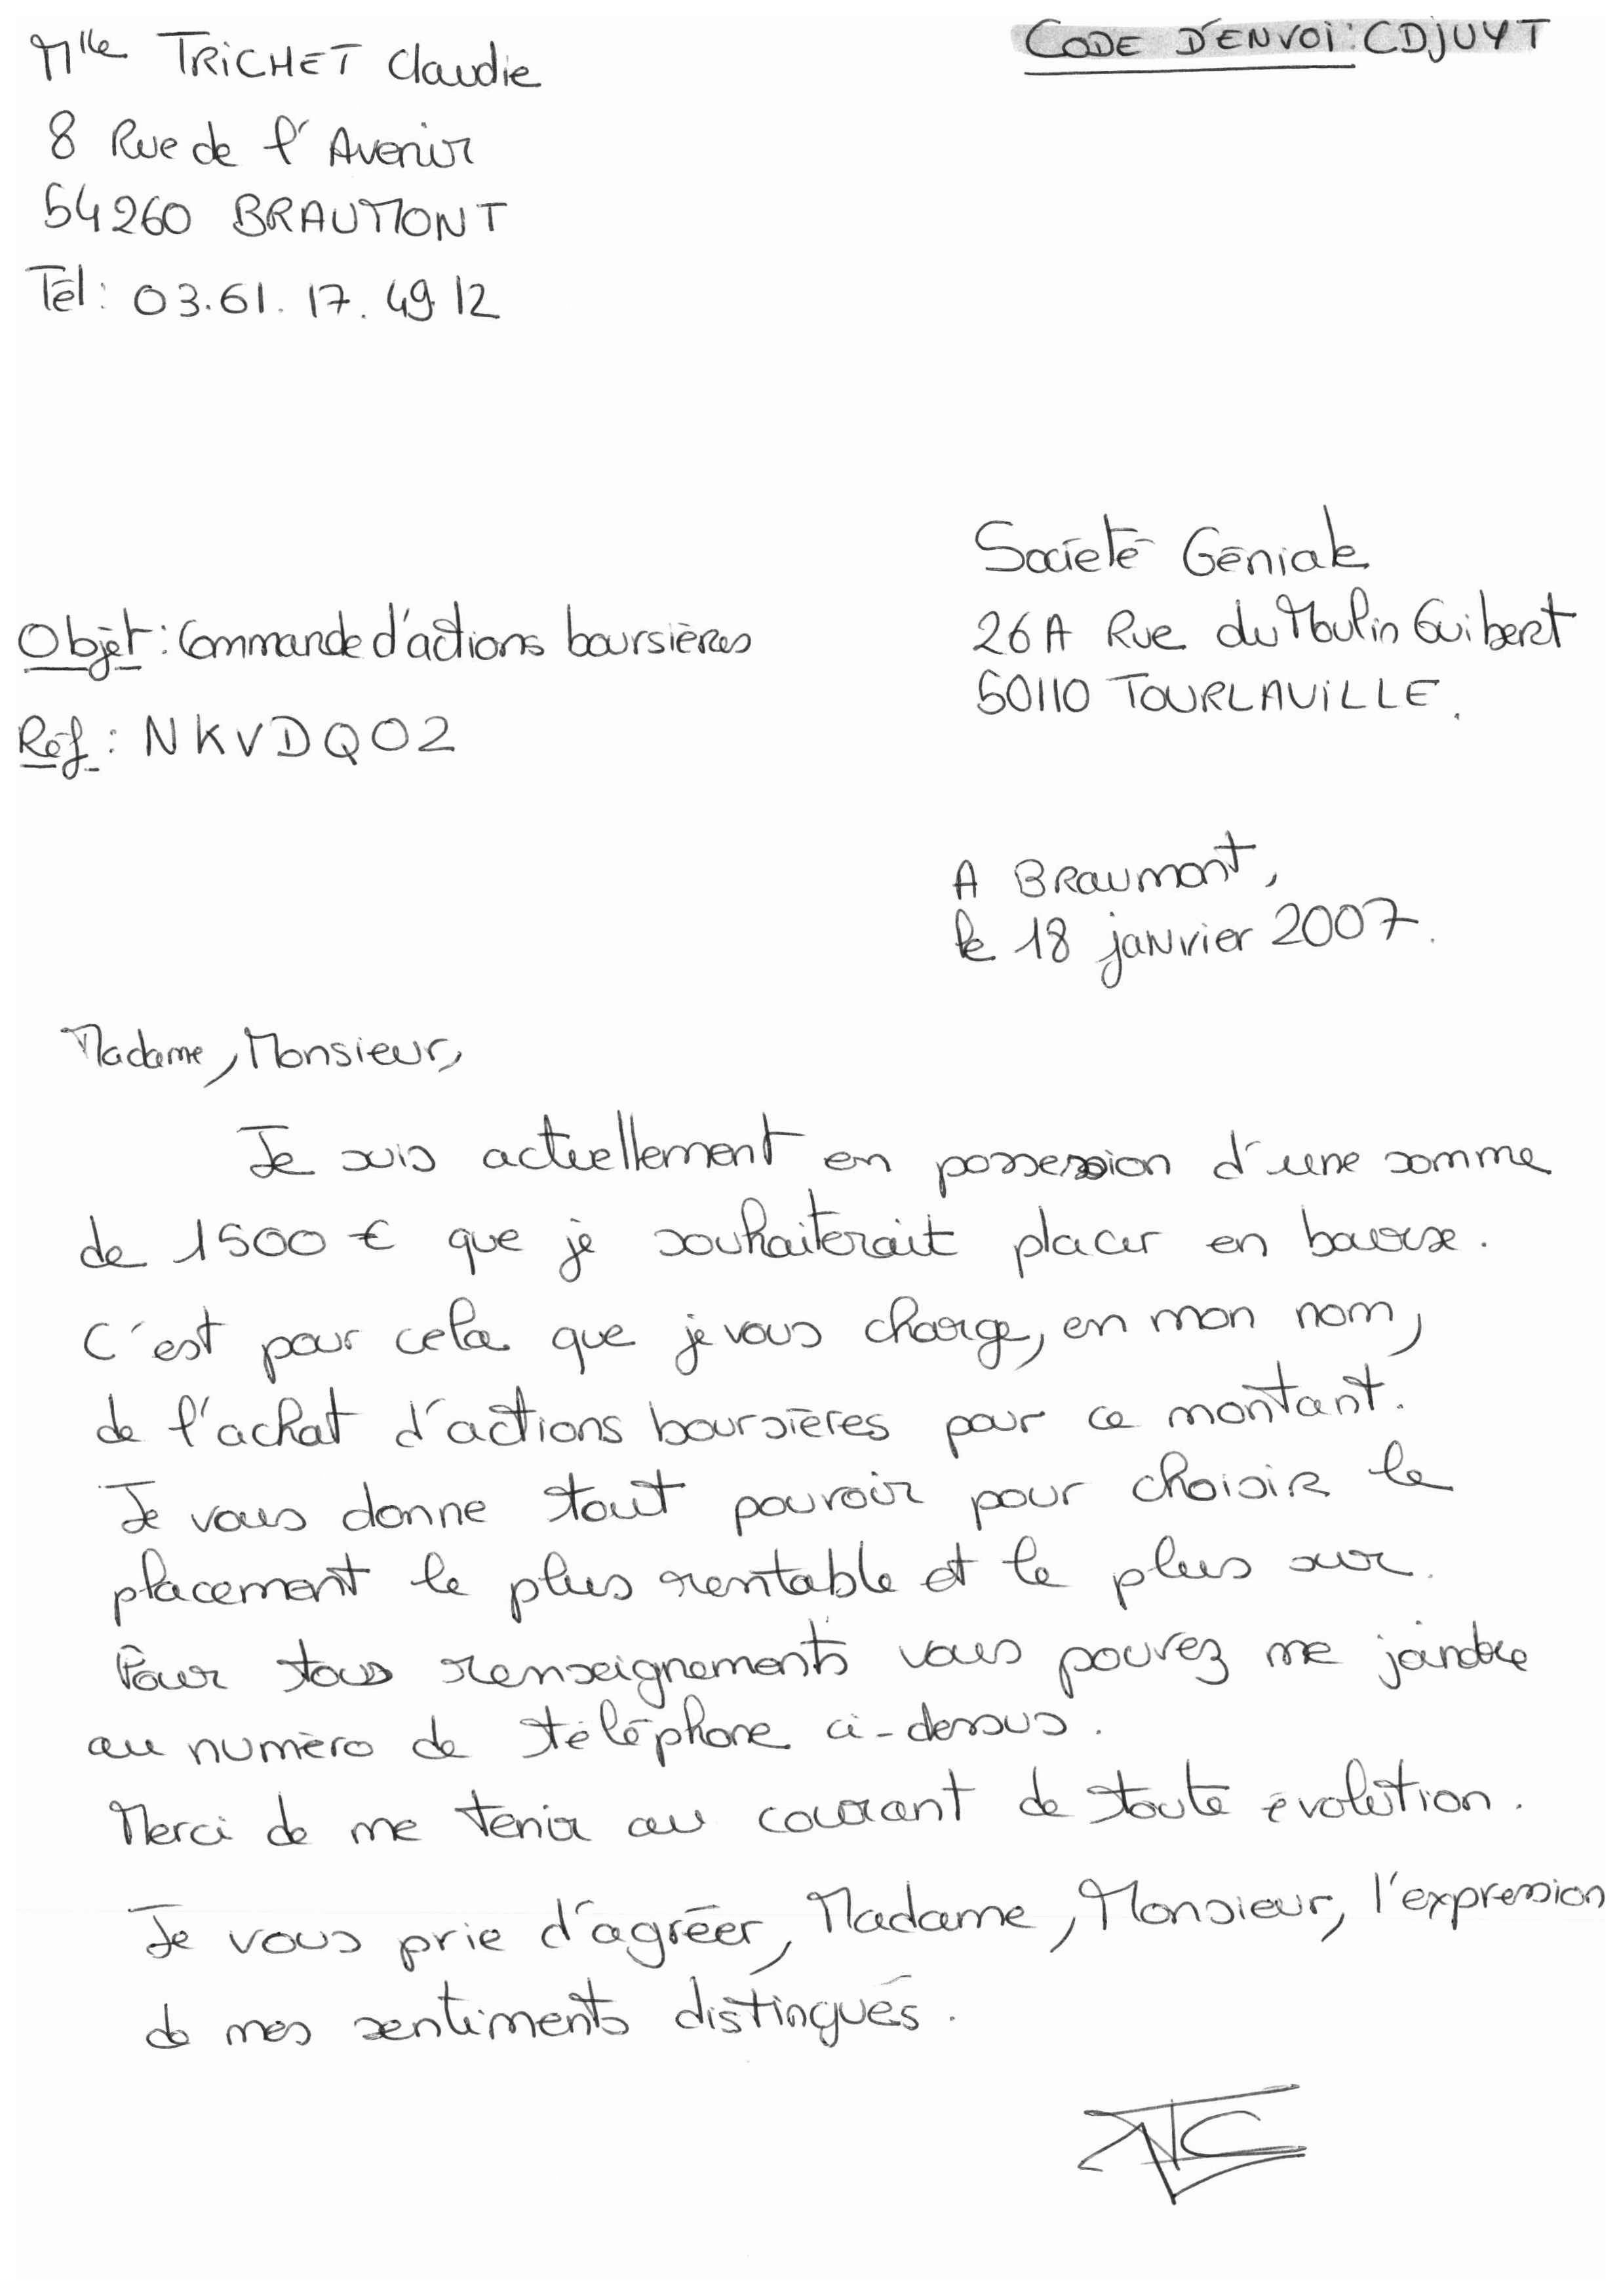 Mlle TRICHET Claudie
CODE D'ENVOI : CDJUYT
8 Rue de l'Avenir
54260 BRAUMONT
Tél : 03.61.17.49 12
Société Géniale
26A Rue du Moulin Guibert
50110 TOURLAVILLE.
Objèt : Commande d'actions boursières
Réf : NKVDQ02
A Braumont,
le 18 janvier 2007.
Madame, Monsieur,
Je suis actuellement en possession d'une somme
de 1500 € que je souhaiterait placer en bourse.
C'est pour cela que je vous charge, en mon nom,
de l'achat d'actions boursières pour ce montant.
Je vous donne tout pouvoir pour choisir le
placement le plus rentable et le plus sur.
Pour tous renseignements vous pouvez me joindre
au numèro de téléphone ci-dessus.
Merci de me tenir au courant de toute évolution.
Je vous prie d'agréer, Madame, Monsieur, l'expression
de mes sentiments distingués.